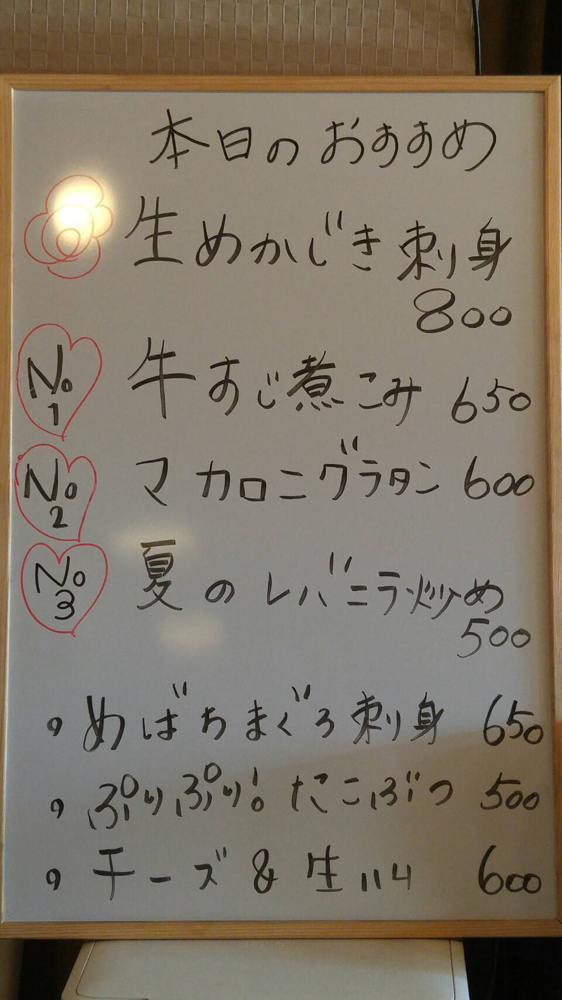 本日のおすすめ
生めかじき刺身
800
No 1 牛すじ煮こみ 650
No 2 マカロニグラタン 600
No 3 夏のレバニラ炒め
500
・めばちまぐろ刺身 650
・ぷりぷり!たこぶつ 500
・チーズ&生ハム 600